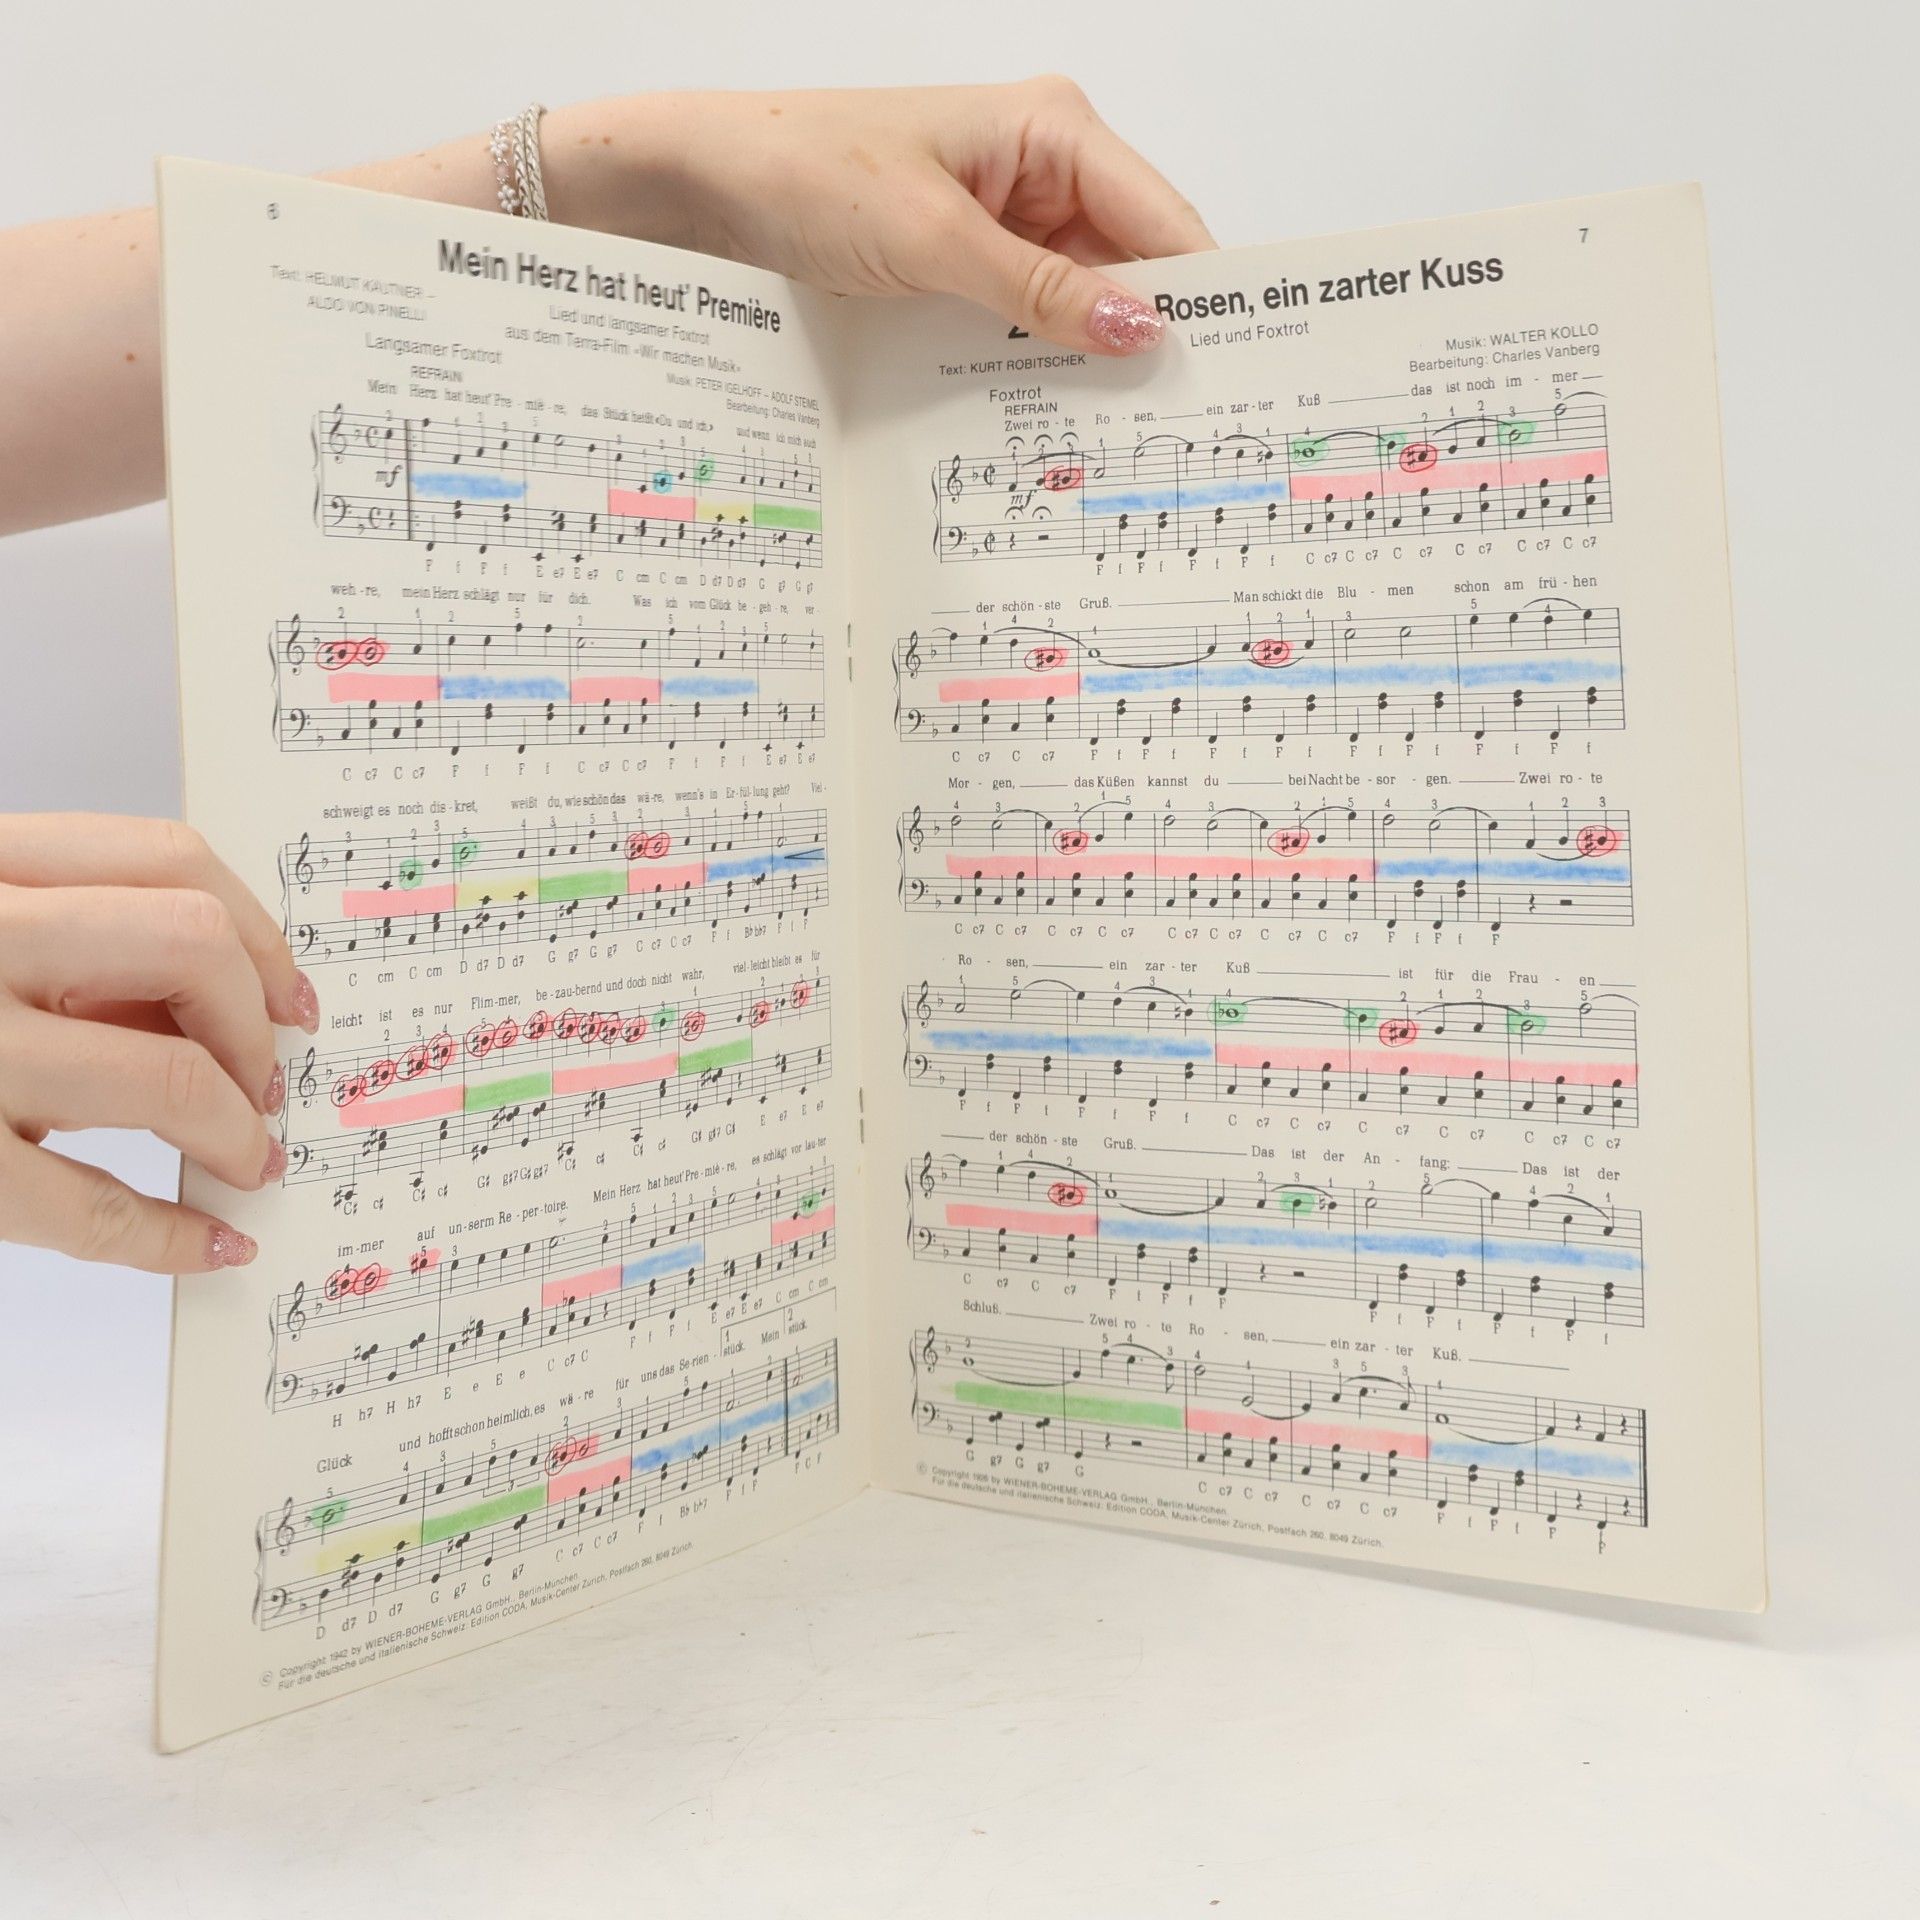 6
Mein Herz hat heut' Première
Text: HELMUT KÄUTNER –
ALDO VON PINELLI
Lied und langsamer Foxtrot
aus dem Terra-Film «Wir machen Musik»
Langsamer Foxtrot
Musik: PETER IGELHOFF – ADOLF STEIMEL
Bearbeitung: Charles Vanberg
REFRAIN
Mein Herz hat heut' Pre - miè - re, das Stück heißt «Du und ich,» und wenn ich mich auch
mf
F f F f E e7 E e7 C cm C cm D d7 D d7 G g7 G g7
weh - re, mein Herz schlägt nur für dich. Was ich vom Glück be - geh - re, ver -
C c7 C c7 F f F f C c7 C c7 F f F f E e7 E e7
schweigt es noch dis - kret, weißt du, wie schön das wä - re, wenn's in Er - fül - lung geht? Viel -
C cm C cm D d7 D d7 G g7 G g7 C c7 C c7 F f Bb bb7 F f F
leicht ist es nur Flim - mer, be - zau - bernd und doch nicht wahr, viel - leicht bleibt es für
C# c# C# c# G# g#7 G# g#7 C# c# C# c# G# g#7 G# E e7 E e7
im - mer auf un - serm Re - per - toire. Mein Herz hat heut' Pre - miè - re, es schlägt vor lau - ter
H h7 H h7 E e E e C c7 C F f F f E e7 E e7 C cm C cm
Glück und hofft schon heimlich, es wä - re für uns das Se - rien - stück. Mein stück.
D d7 D d7 G g7 G g7 C c7 C c7 F f Bb bb7 F f F F C F
© Copyright 1942 by WIENER-BOHEME-VERLAG GmbH., Berlin-München.
Für die deutsche und italienische Schweiz: Edition CODA, Musik-Center Zürich, Postfach 260, 8049 Zürich.
7
Rosen, ein zarter Kuss
Lied und Foxtrot
Text: KURT ROBITSCHEK
Musik: WALTER KOLLO
Bearbeitung: Charles Vanberg
Foxtrot
REFRAIN
Zwei ro - te Ro - sen, ein zar - ter Kuß das ist noch im - mer
mf
F f F f F f F f C c7 C c7 C c7 C c7 C c7 C c7
der schön - ste Gruß. Man schickt die Blu - men schon am frü - hen
C c7 C c7 F f F f F f F f F f F f F f F f
Mor - gen, das Küßen kannst du bei Nacht be - sor - gen. Zwei ro - te
C c7 C c7 C c7 C c7 C c7 C c7 C c7 C c7 F f F f F
Ro - sen, ein zar - ter Kuß ist für die Frau - en
F f F f F f F f C c7 C c7 C c7 C c7 C c7 C c7
der schön - ste Gruß. Das ist der An - fang: Das ist der
C c7 C c7 F f F f F F f F f F f F f
Schluß. Zwei ro - te Ro - sen, ein zar - ter Kuß.
G g7 G g7 G C c7 C c7 C c7 C c7 F f F f F F
© Copyright 1926 by WIENER-BOHEME-VERLAG GmbH., Berlin-München
Für die deutsche und italienische Schweiz: Edition CODA, Musik-Center Zürich, Postfach 260, 8049 Zürich.